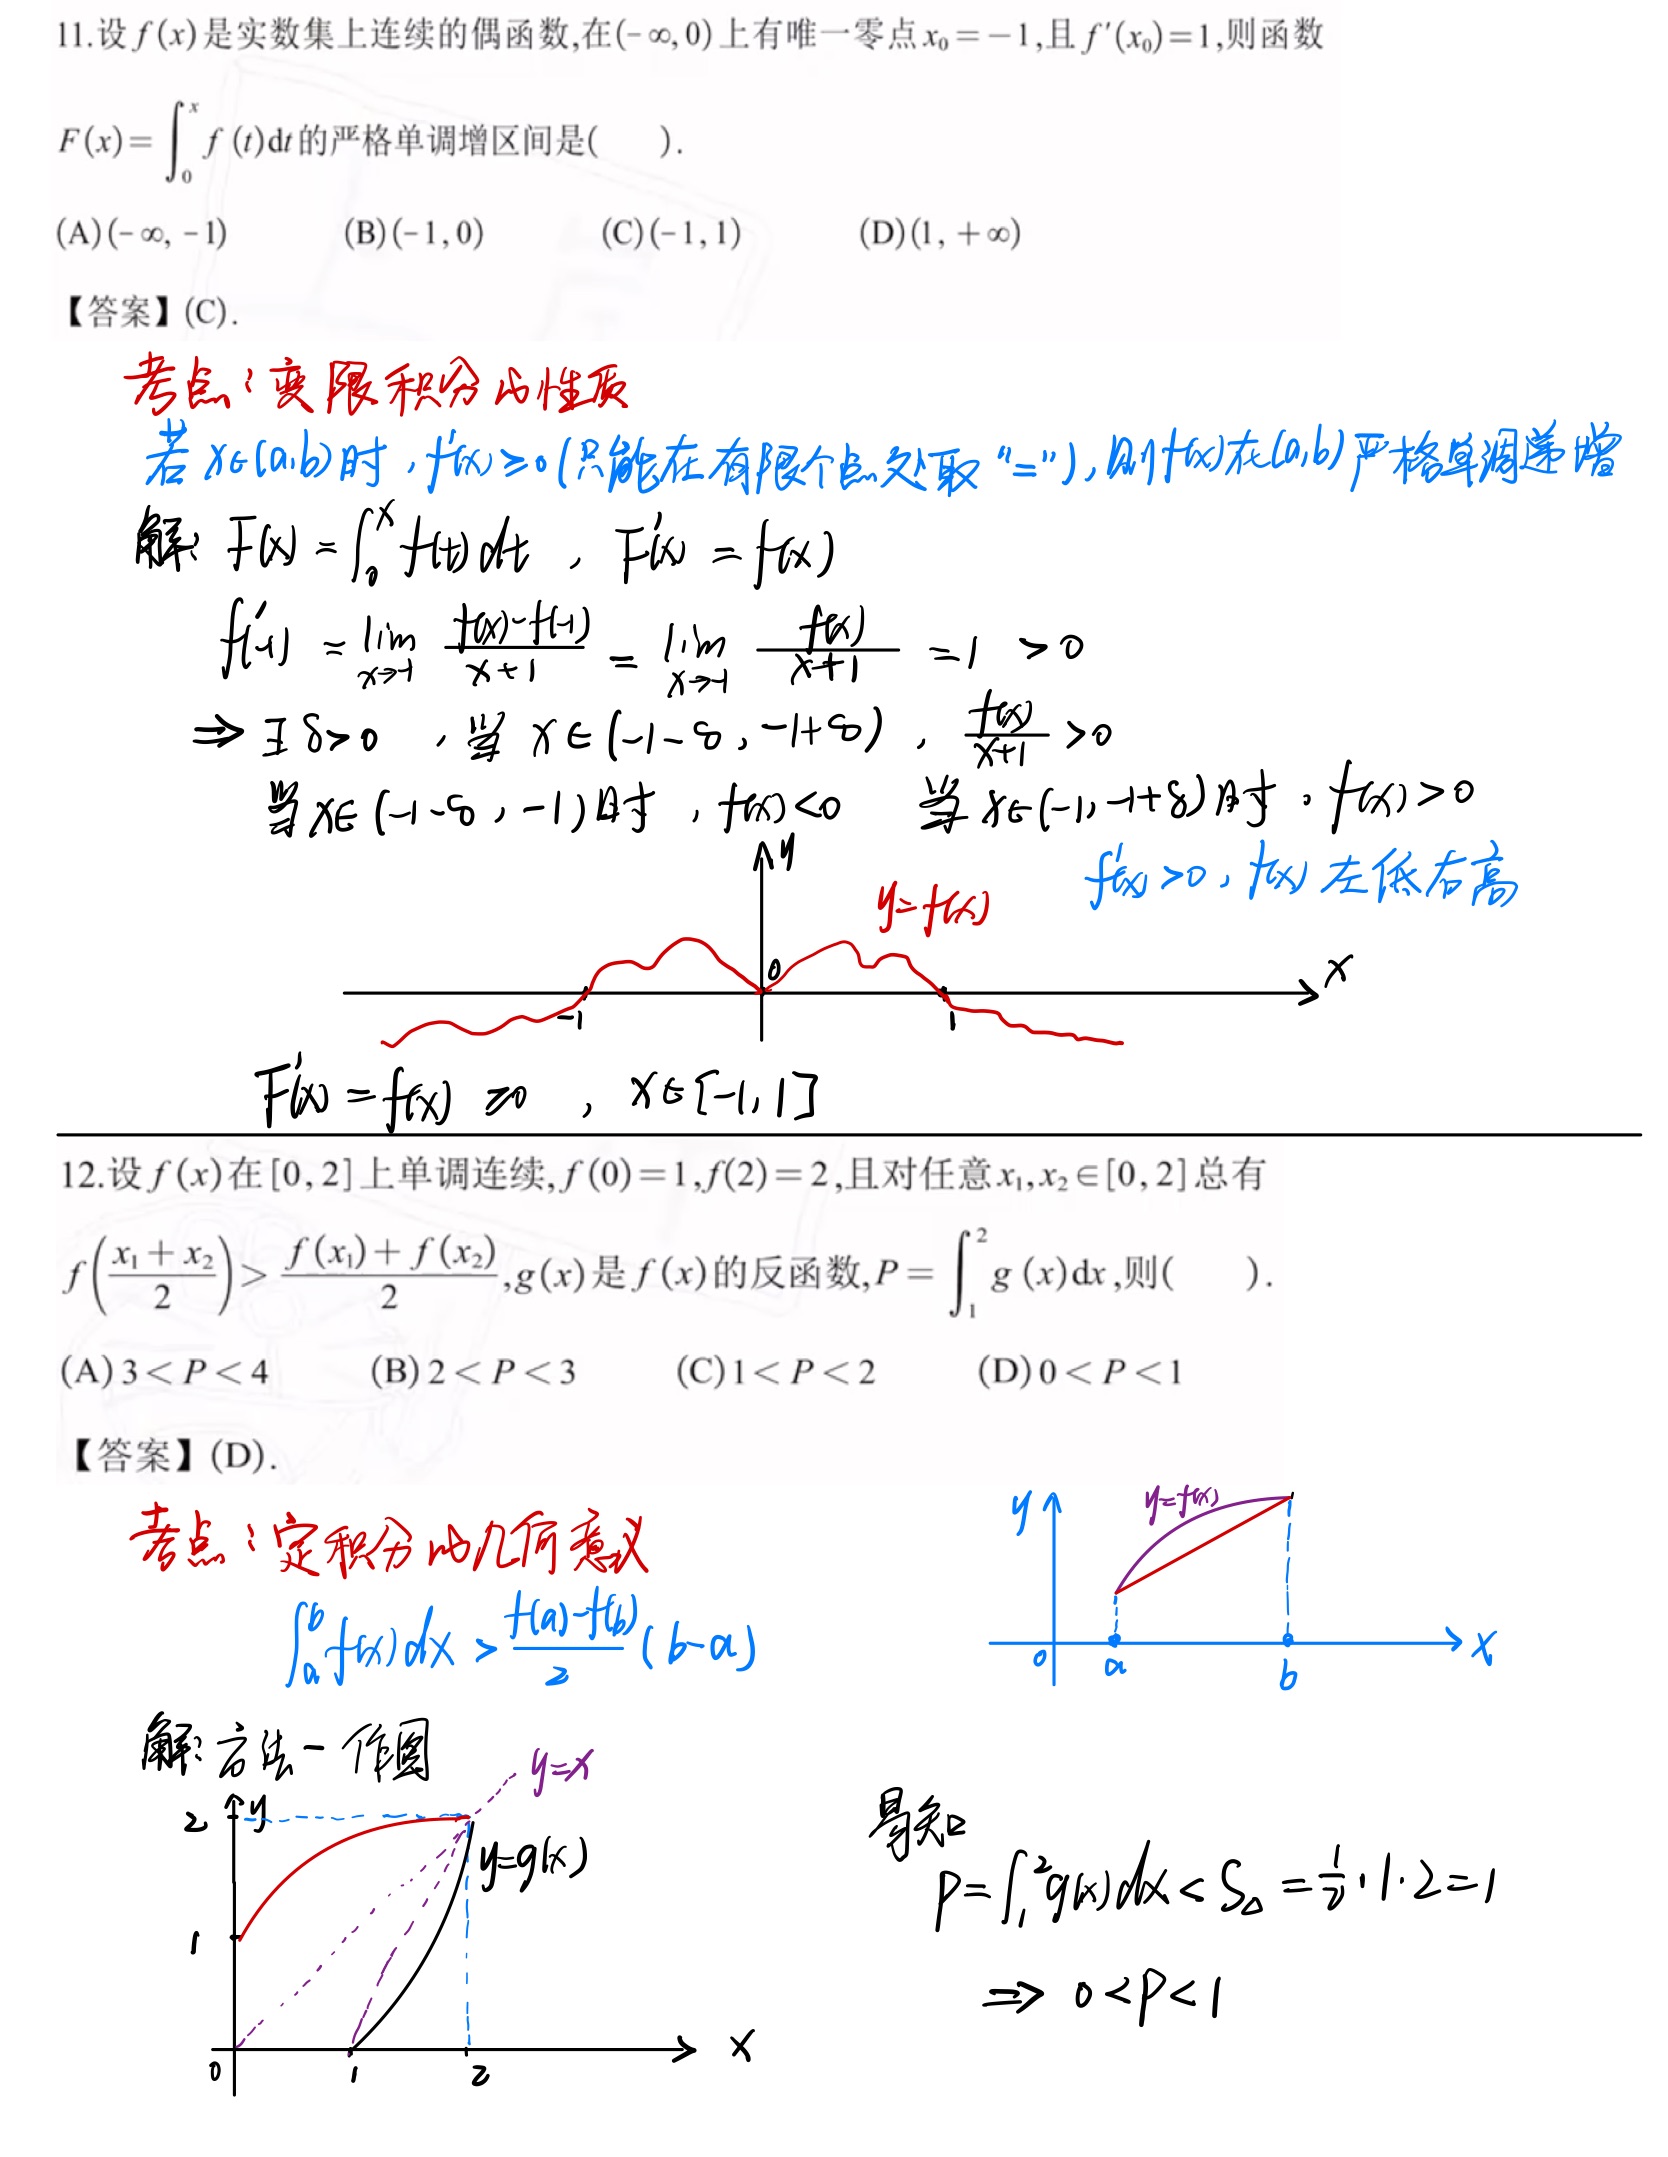 11.设f(x)是实数集上连续的偶函数,在(-∞,0)上有唯一零点x₀=-1,且f′(x₀)=1,则函数
F(x)=∫₀ˣ f(t)dt的严格单调增区间是(　　).
(A)(-∞,-1)　(B)(-1,0)　(C)(-1,1)　(D)(1,+∞)
【答案】(C).
考点:变限积分的性质
若x∈(a,b)时,f′(x)≥0(只能在有限个点处取"="),则f(x)在(a,b)严格单调递增
解: F(x)=∫₀ˣ f(t)dt , F′(x)=f(x)
f′(-1)=lim_{x→-1} (f(x)-f(-1))/(x+1) = lim_{x→-1} f(x)/(x+1) =1 >0
⇒ ∃δ>0 ,当 x∈(-1-δ,-1+δ) , f(x)/(x+1) >0
当x∈(-1-δ,-1)时,f(x)<0 当x∈(-1,-1+δ)时,f(x)>0
f′(x)>0,f(x)左低右高
y
y=f(x)
0
x
-1
1
F′(x)=f(x)≥0 , x∈[-1,1]
12.设f(x)在[0,2]上单调连续,f(0)=1,f(2)=2,且对任意x₁,x₂∈[0,2]总有
f((x₁+x₂)/2)>(f(x₁)+f(x₂))/2,g(x)是f(x)的反函数,P=∫₁² g(x)dx,则(　　).
(A)3<P<4　(B)2<P<3　(C)1<P<2　(D)0<P<1
【答案】(D).
考点:定积分的几何意义
y
y=f(x)
∫ₐᵇ f(x)dx > (f(a)-f(b))/2 (b-a)
0
a
b
x
解:方法一 作图
y=x
2
y
y=g(x)
1
0
1
2
x
易知
P=∫₁² g(x)dx < S△ = 1/2·1·2=1
⇒ 0<P<1